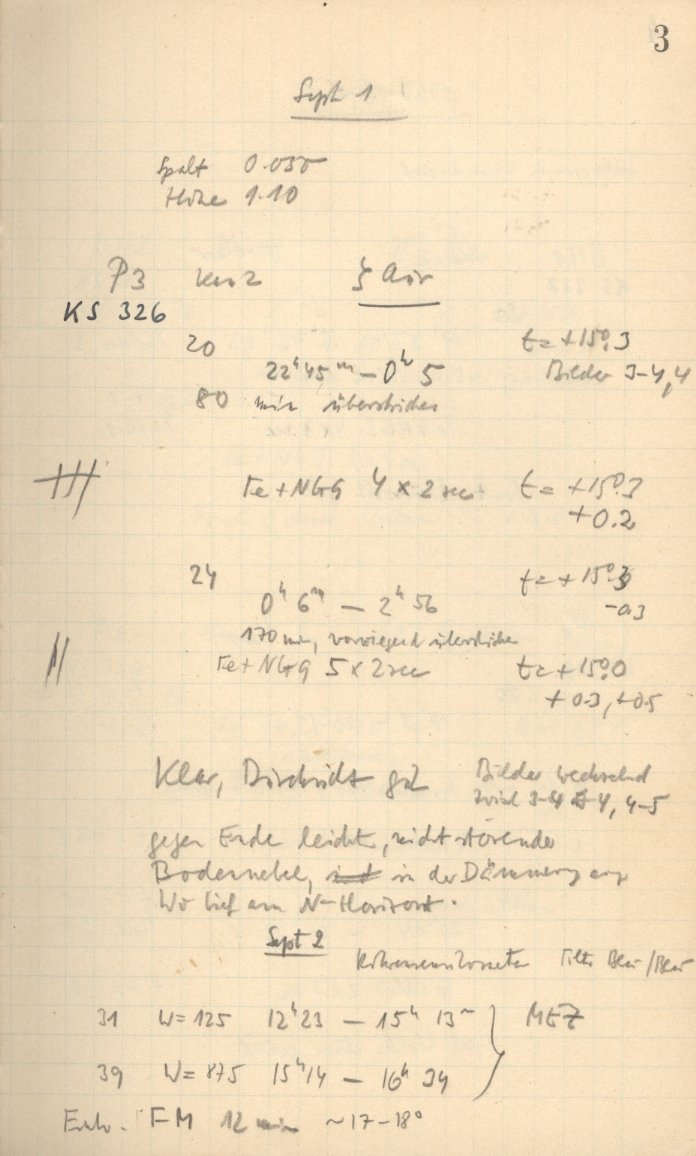 3
Sept 1
Spalt 0.035
Höhe 1.10
P3 ζ Aur
KS 326
20 t = +15°.3
22h45m – 0h 5 Bilder 3–4, 4
80 min überstrichen
Fe + NGG 4 x 2 sec t = +15°.3
+0.2
24 t = +15°.3
0h 6m – 2h 56 -0.3
170 min, vorwiegend überstrichen
Fe + NGG 5 x 2 sec t = +15°.0
+0.3, +0.5
Klar, Durchsicht gut Bilder wechselnd
3–4 4, 4–5
gegen Ende leichter, nicht störender
Bodennebel, in der Dämmerung
Wo tief am N-Horizont.
Sept 2
Röhrensensitometer Filter Blau/Blau
31 W = 125 12h23 – 15h 13m } MEZ
39 W = 875 15h14 – 16h 34
Entw. FM 12 min ~17–18°